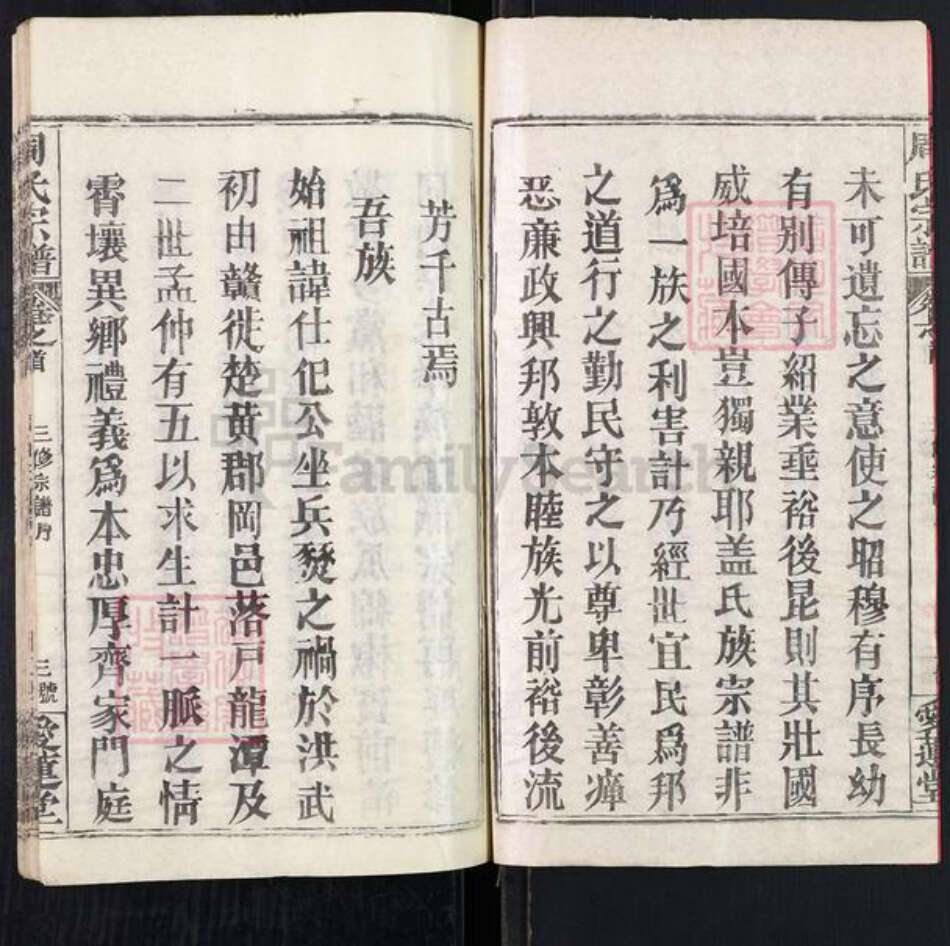 未可遺忘之意使之昭穆有序長幼
有別傳子紹業垂裕後昆則其壯國
威培國本豈獨親耶盖氏族宗譜非
爲一族之利害計乃經世宜民爲邦
之道行之勤民守之以尊卑彰善癉
惡亷政興邦敦本睦族光前裕後流
芳千古焉
吾族
始祖諱仕伲公坐兵燹之禍於洪武
初由贛徙楚黄郡岡邑落戸龍潭及
二世孟仲有五以求生計一脈之情
霄壤異鄉禮義爲本忠厚齊家門庭
周氏宗譜
卷之首
三修宗譜序
三號
愛蓮堂
FamilySearch